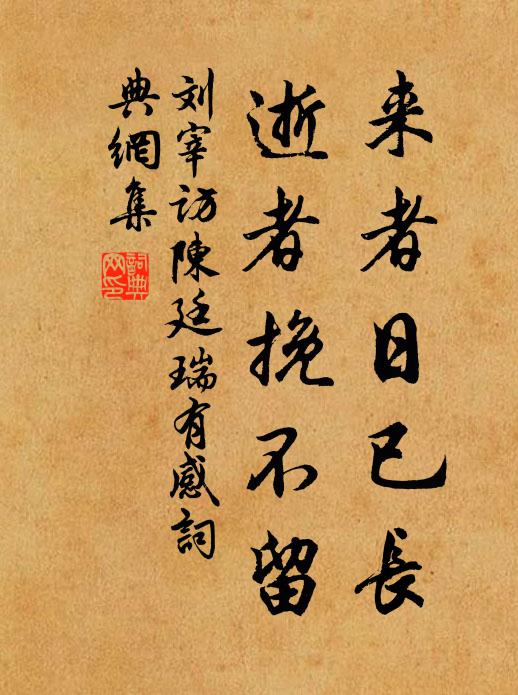 来者日已長
逝者挽不留
刘宰访陳廷瑞有感詞
典網集
詞典
网印